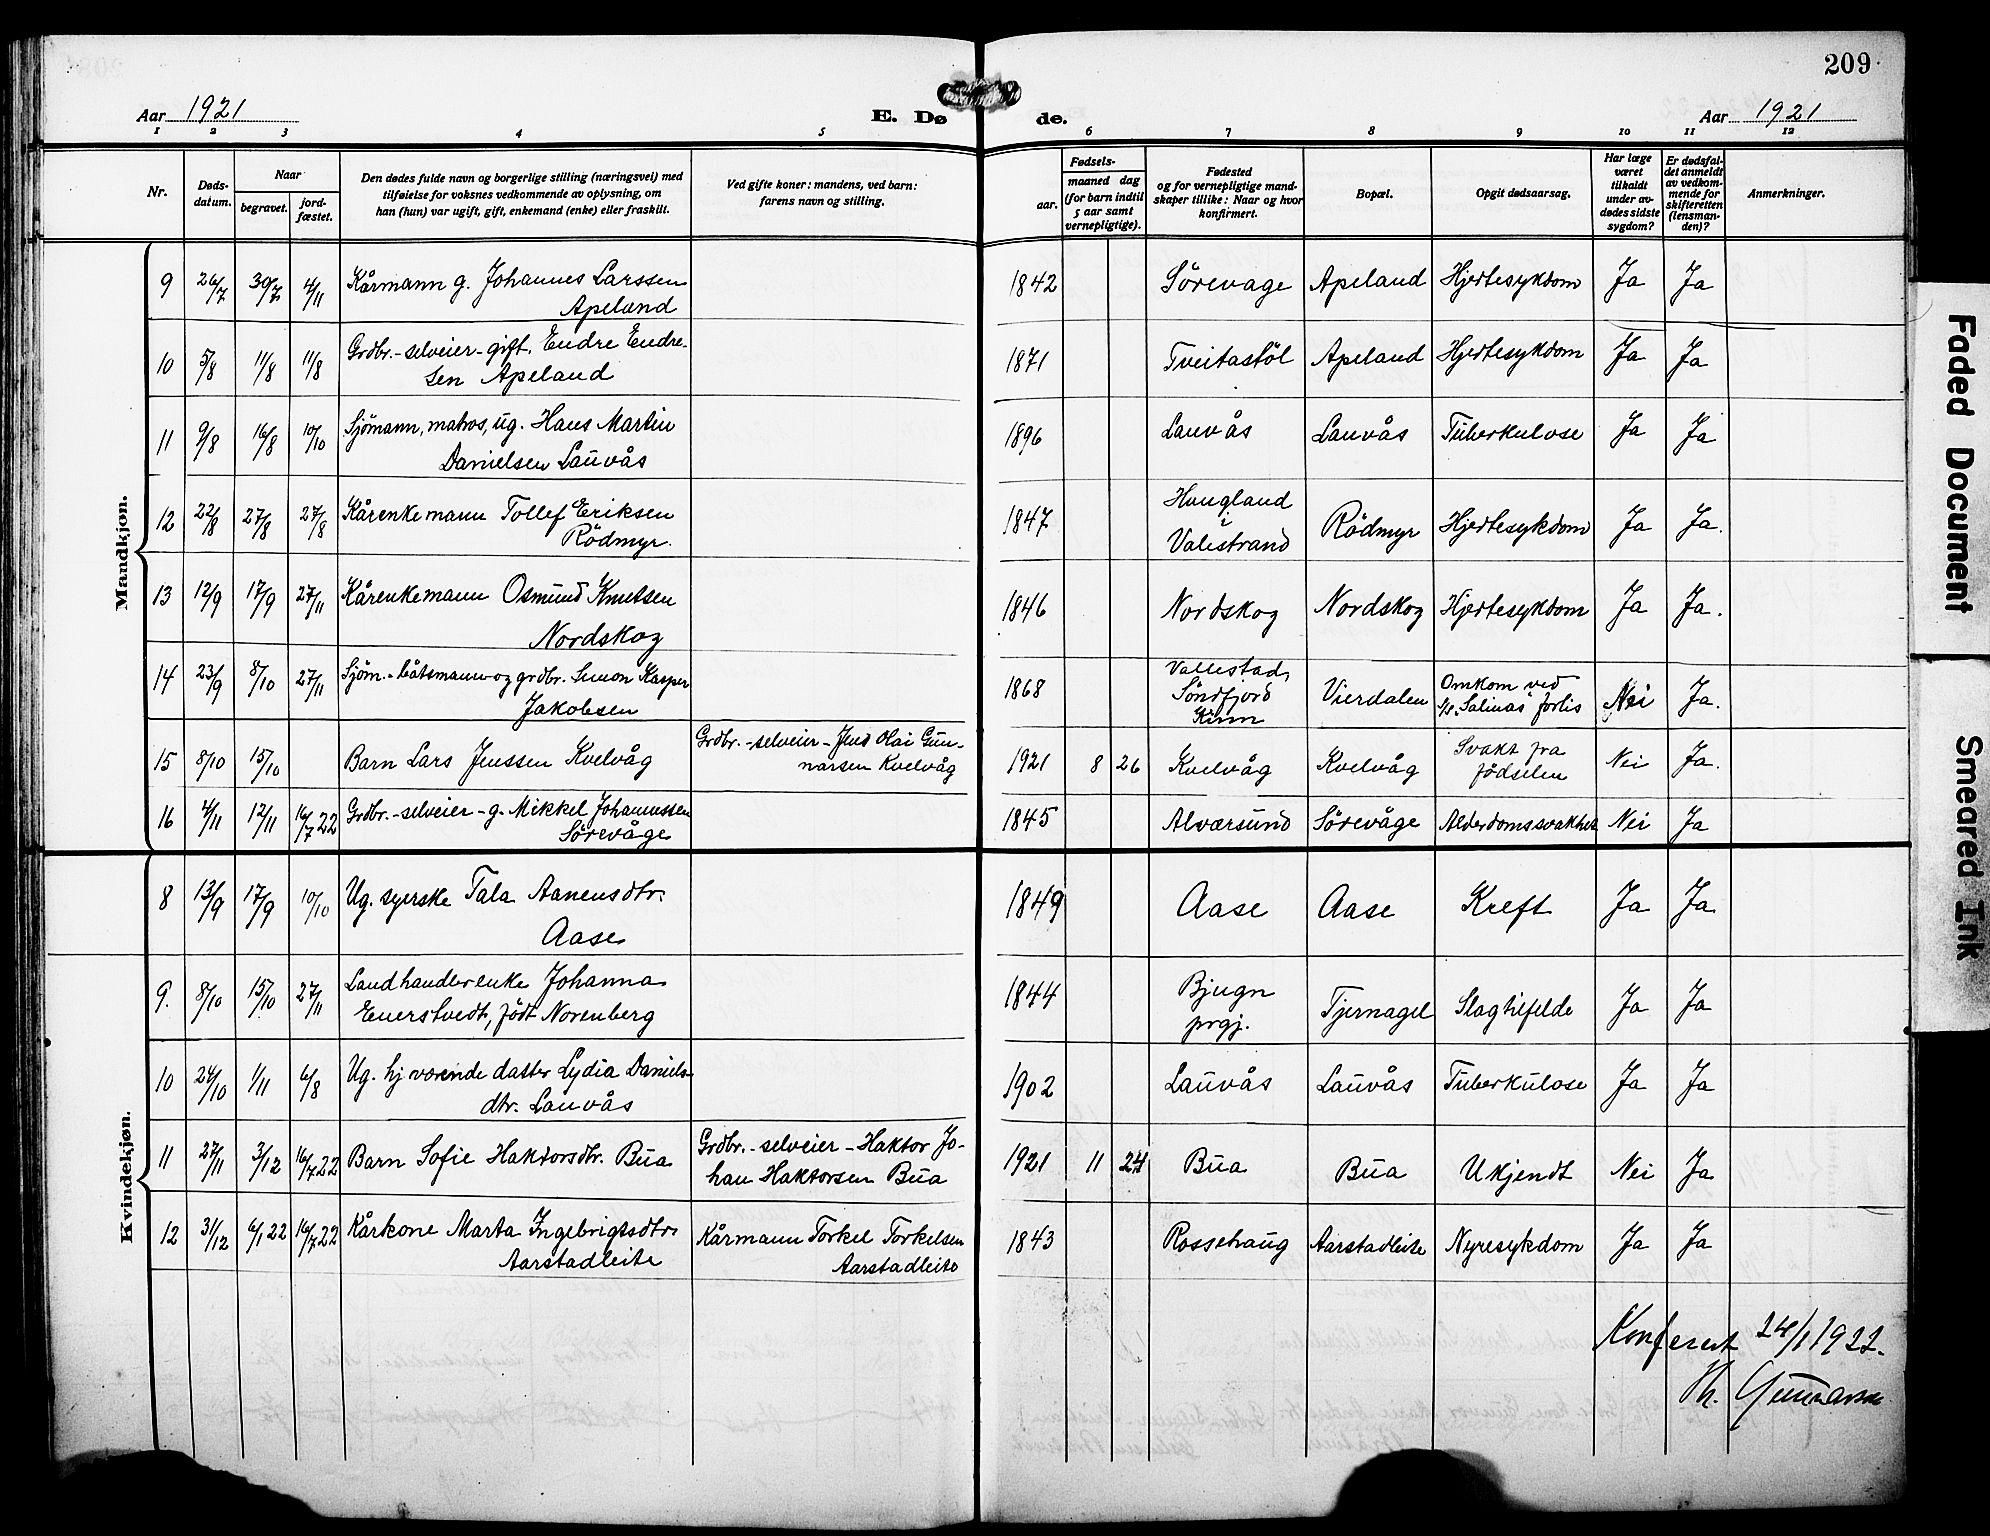 209
Aar 1921
E. Dø de.
Aar 1921
1 2 3 4 5 6 7 8 9 10 11 12
Nr.
Døds-
datum.
Naar
begravet.
jord-
fæstet.
Den dødes fulde navn og borgerlige stilling (næringsvei) med
tilføielse for voksnes vedkommende av oplysning, om
han (hun) var ugift, gift, enkemand (enke) eller fraskilt.
Ved gifte koner: mandens, ved barn:
farens navn og stilling.
Fødsels-
aar.
maaned dag
(for barn indtil
5 aar samt
vernepligtige).
Fødested
og for vernepligtige mand-
skaper tillike: Naar og hvor
konfirmert.
Bopæl.
Opgit dødsaarsag.
Har læge
været
tilkaldt
under av-
dødes sidste
sygdom?
Er dødsfal-
det anmeldt
av vedkom-
mende for
skifteretten
(lensman-
den)?
Anmerkninger.
Mandkjøn.
9 26/7 30/7 4/11 Kårmann g. Johannes Larssen
Apeland
1842 Sörevage Apeland Hjertesykdom Ja Ja
10 5/8 11/8 11/8 Grdbr.-selveier-gift. Endre Endre-
sen Apeland
1871 Tveitastöl Apeland Hjertesykdom Ja Ja
11 9/8 16/8 10/10 Sjömann, matros, ug. Hans Martin
Danielsen Lauvås
1896 Lauvås Lauvås Tuberkulose Ja Ja
12 22/8 27/8 27/8 Kårenkemann Tollef Eriksen
Rödmyr.
1847 Haugland
i
Valestrand
Rödmyr Hjertesykdom Ja Ja.
13 12/9 17/9 27/11 Kårenkemann Osmund Knutsen
Nordskog
1846 Nordskog Nordskog Hjertesykdom Ja Ja.
14 23/9 8/10 27/11 Sjöm.-båtsmann og grdbr. Simon Kasper
Jakobsen
1868 Vallestad,
Söndfjord
Kinn
Vierdalen Omkom ved
s/s "Salinas" forlis
Nei Ja.
15 8/10 15/10 Barn Lars Jenssen Kvelvåg
Grdbr.-selveier-Jens Olai Gun-
narsen Kvelvåg
1921 8 26 Kvelvåg Kvelvåg Svakt fra
födselen
Nei Ja.
16 4/11 12/11 16/7 22 Grdbr.-selveier-g. Mikkel Johannessen
Sörevåge
1845 Alværsund Sörevåge Alderdomssvakhet Nei Ja
Kvindekjøn.
8 13/9 17/9 10/10 Ug. syerske Tala Aanensdtr.
Aase
1849 Aase Aase Kreft Ja Ja
9. 8/10 15/10 27/11 Landhandlerenke Johanna
Enerstvedt, född Norenberg
1844 Bjugn
prgj.
Tjernagel Slagtilfelde Ja Ja
10 24/10 1/11 6/8 Ug. hj.værende datter Lydia Daniels-
dtr. Lauvås
1902 Lauvås Lauvås Tuberkulose Ja Ja
11 27/11 3/12 16/7 22 Barn Sofie Haktorsdtr. Bua
Grdbr.-selveier-Haktor Jo-
han Haktorsen Bua
1921 11 24 Bua Bua Ukjendt Nei Ja
12 31/12 6/1 22 16/7 22 Kårkone Marta Ingebrigtsdtr.
Aarstadleite
Kårmann Torkel Torkelsen
Aarstadleite
1843 Rossehaug Aarstadleite Nyresykdom Ja Ja
Konferert 24/1 1922.
Th. Gunnarson
Faded Document
Smeared Ink